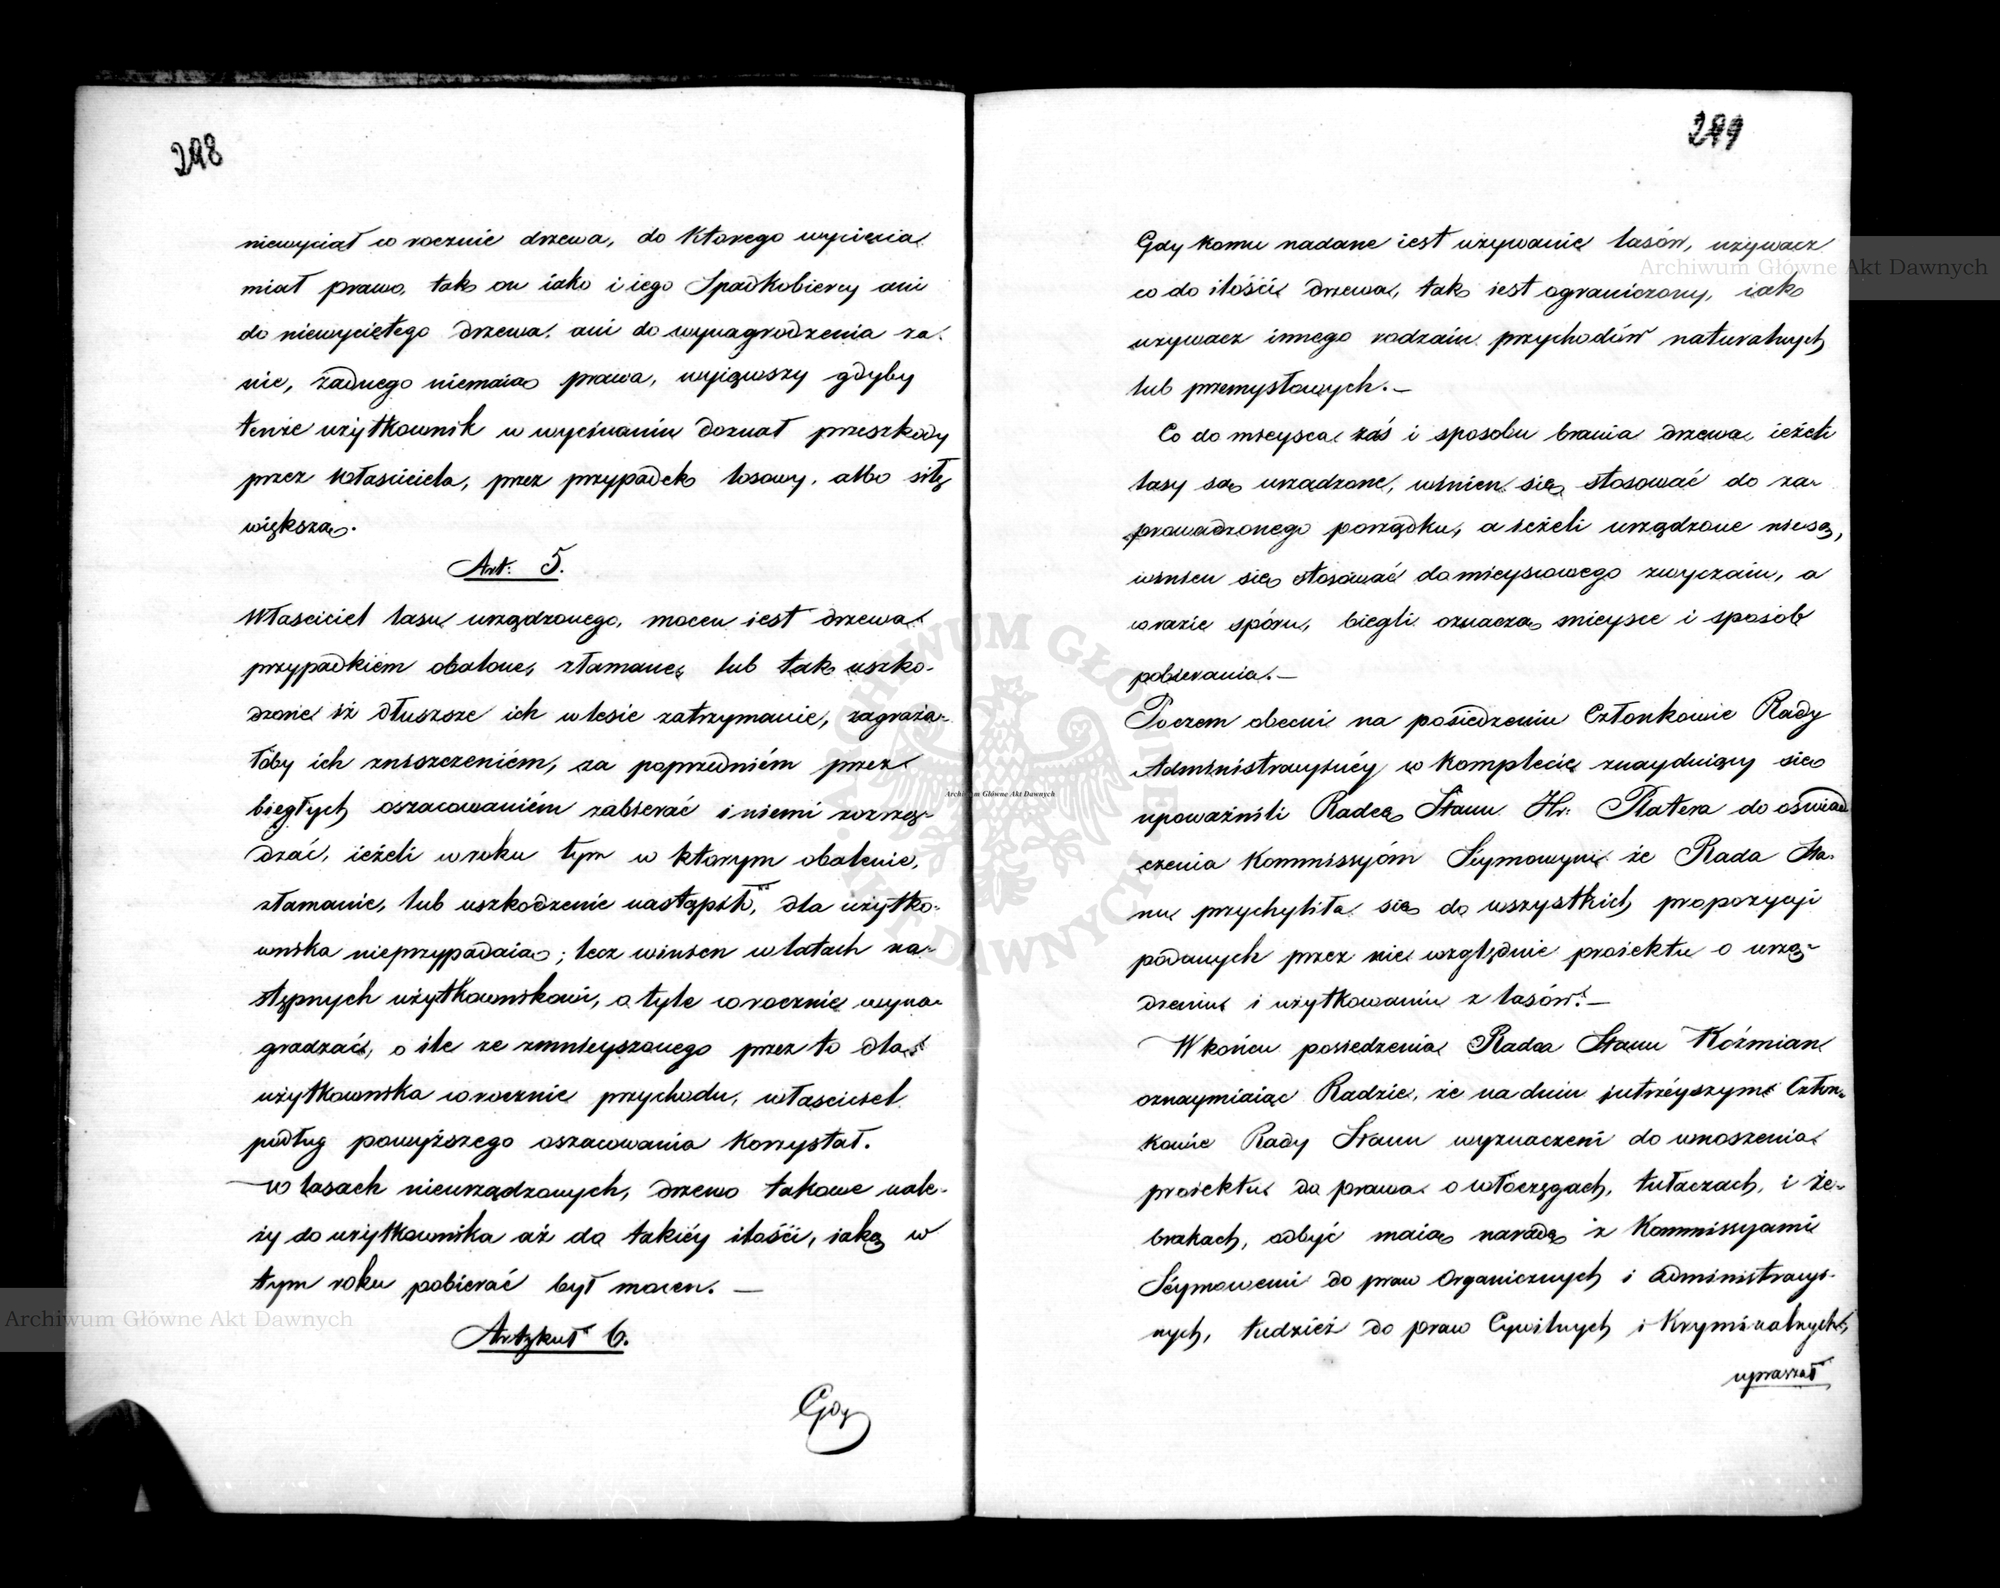 298
niewyciął corocznie drzewa, do którego wycięcia
miał prawo, tak on iako i iego Spadkobiercy ani
do niewyciętego drzewa, ani do wynagrodzenia za
nie, żadnego niemaią prawa, wyiąwszy gdyby
tenże użytkownik w wycinaniu doznał przeszkody
przez właściciela, przez przypadek losowy, albo siłę
większą.
Art: 5.
Właściciel lasu urządzonego, mocen iest drzewa
przypadkiem obalone, złamane, lub tak uszko-
dzone iż dłuższe ich w lesie zatrzymanie, zagraża-
łoby ich zniszczeniém, za poprzedniém przez
biegłych oszacowaniém zabierać i niemi rozrzą-
dzać, ieżeli w roku tym w którym obalenie,
złamanie, lub uszkodzenie nastąpiło, dla użytko-
wnika nieprzypadaią; lecz winien w latach na-
stępnych użytkownikowi, o tyle corocznie wyna-
gradzać, o ile ze zmnieyszonego przez to dla
użytkownika corocznie przychodu, właściciel
podług powyższego oszacowania korzystał.
W lasach nieurządzonych, drzewo takowe nale-
ży do użytkownika aż do takiéy ilości, iaką w
tym roku pobierać był mocen. —
Artykuł 6.
Gdy
299
Gdy komu nadane iest używanie lasów, używacz
co do ilości drzewa, tak iest ograniczony, iako
używacz innego rodzaiu przychodów naturalnych
lub przemysłowych. —
Co do mieysca zaś i sposobu brania drzewa ieżeli
lasy są urządzone, winien się stosować do za-
prowadzonego porządku, a ieżeli urządzone niesą,
winien się stosować do mieyscowego zwyczaiu, a
w razie sporu, biegli oznaczą mieysce i sposób
pobierania. —
Poczem obecni na posiedzeniu Członkowie Rady
Administracyinéy w komplecie znayduiący się
upoważnili Radcę Stanu Hr: Platera do oświad
czenia Kommissyóm Seymowym że Rada Sta-
nu przychyliła się do wszystkich propozycji
podanych przez nie względnie proiektu o urzą-
dzeniu i użytkowaniu z lasów. —
W końcu posiedzenia Radca Stanu Koźmian
oznaymiaiąc Radzie, że na dniu jutrzéyszym Człon-
kowie Rady Stanu wyznaczeni do wnoszenia
proiektu do prawa o włóczęgach, tułaczach, i że-
brakach, odbyć maią naradę z Kommissyami
Seymowemi do praw Organicznych i Administracyi-
nych, tudzież do praw Cywilnych i Kryminalnych,
upraszał
Archiwum Główne Akt Dawnych
Archiwum Główne Akt Dawnych
Archiwum Główne Akt Dawnych
ARCHIWUM GŁÓWNE AKT DAWNYCH